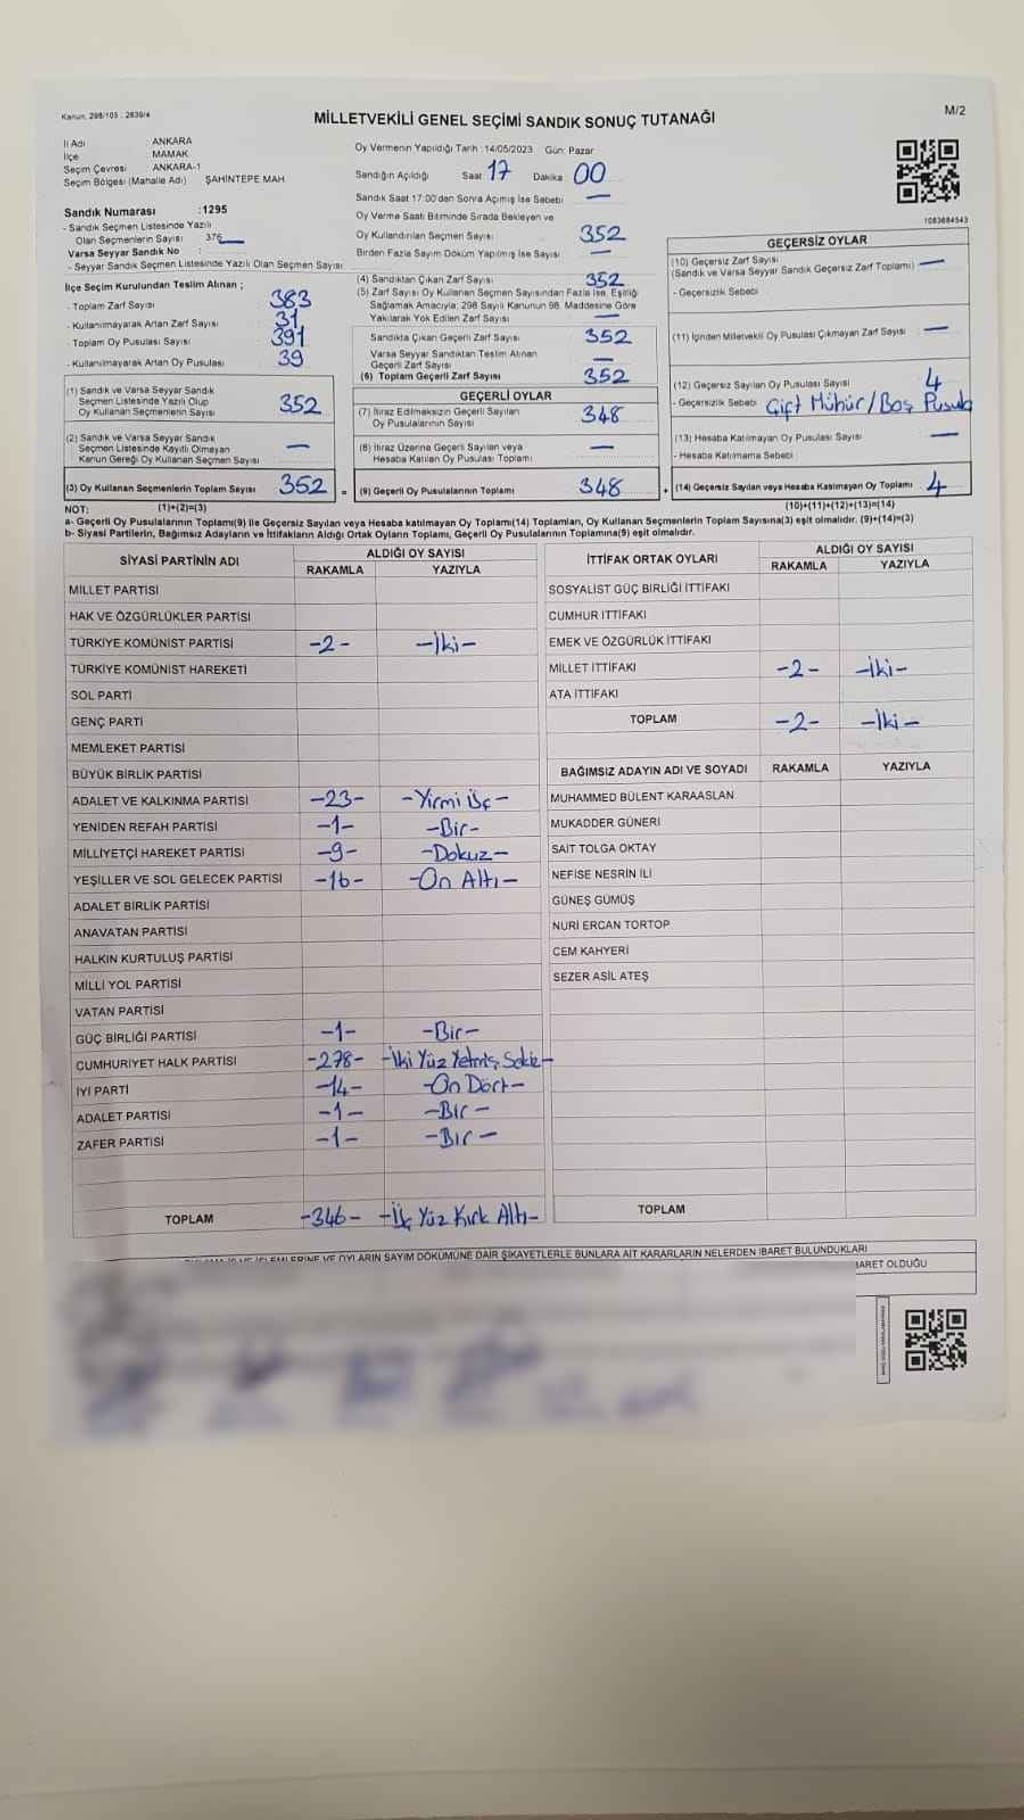 Kanun: 298/105 - 2839/4
MİLLETVEKİLİ GENEL SEÇİMİ SANDIK SONUÇ TUTANAĞI
M/2
İl Adı : ANKARA
İlçe : MAMAK
Seçim Çevresi : ANKARA-1
Seçim Bölgesi (Mahalle Adı) : ŞAHİNTEPE MAH.
Sandık Numarası : 1295
- Sandık Seçmen Listesinde Yazılı
Olan Seçmenlerin Sayısı : 376
Varsa Seyyar Sandık No :
- Seyyar Sandık Seçmen Listesinde Yazılı Olan Seçmen Sayısı
İlçe Seçim Kurulundan Teslim Alınan ;
- Toplam Zarf Sayısı 383
- Kullanılmayarak Artan Zarf Sayısı 31
- Toplam Oy Pusulası Sayısı 391
- Kullanılmayarak Artan Oy Pusulası 39
(1) Sandık ve Varsa Seyyar Sandık
Seçmen Listesinde Yazılı Olup
Oy Kullanan Seçmenlerin Sayısı 352
(2) Sandık ve Varsa Seyyar Sandık
Seçmen Listesinde Kayıtlı Olmayan
Kanun Gereği Oy Kullanan Seçmen Sayısı —
(3) Oy Kullanan Seçmenlerin Toplam Sayısı 352
Oy Vermenin Yapıldığı Tarih :14/05/2023 Gün: Pazar
Sandığın Açıldığı Saat 17 Dakika 00
Sandık Saat 17:00'den Sonra Açılmış İse Sebebi —
Oy Verme Saati Bitiminde Sırada Bekleyen ve
Oy Kullandırılan Seçmen Sayısı 352
Birden Fazla Sayım Döküm Yapılmış İse Sayısı —
(4) Sandıktan Çıkan Zarf Sayısı 352
(5) Zarf Sayısı Oy Kullanan Seçmen Sayısından Fazla İse, Eşitliği
Sağlamak Amacıyla; 298 Sayılı Kanunun 98. Maddesine Göre
Yakılarak Yok Edilen Zarf Sayısı —
Sandıkta Çıkan Geçerli Zarf Sayısı 352
Varsa Seyyar Sandıktan Teslim Alınan
Geçerli Zarf Sayısı —
(6) Toplam Geçerli Zarf Sayısı 352
GEÇERLİ OYLAR
(7) İtiraz Edilmeksizin Geçerli Sayılan
Oy Pusulalarının Sayısı 348
(8) İtiraz Üzerine Geçerli Sayılan veya
Hesaba Katılan Oy Pusulası Toplamı —
= (9) Geçerli Oy Pusulalarının Toplamı 348
1083684543
GEÇERSİZ OYLAR
(10) Geçersiz Zarf Sayısı
(Sandık ve Varsa Seyyar Sandık Geçersiz Zarf Toplamı) —
- Geçersizlik Sebebi
(11) İçinden Milletvekili Oy Pusulası Çıkmayan Zarf Sayısı —
(12) Geçersiz Sayılan Oy Pusulası Sayısı 4
- Geçersizlik Sebebi Çift Mühür/Boş Pusula
(13) Hesaba Katılmayan Oy Pusulası Sayısı —
- Hesaba Katılmama Sebebi
+ (14) Geçersiz Sayılan veya Hesaba Katılmayan Oy Toplamı 4
NOT: (1)+(2)=(3)
(10)+(11)+(12)+(13)=(14)
a- Geçerli Oy Pusulalarının Toplamı(9) ile Geçersiz Sayılan veya Hesaba katılmayan Oy Toplamı(14) Toplamları, Oy Kullanan Seçmenlerin Toplam Sayısına(3) eşit olmalıdır. (9)+(14)=(3)
b- Siyasi Partilerin, Bağımsız Adayların ve İttifakların Aldığı Ortak Oyların Toplamı, Geçerli Oy Pusulalarının Toplamına(9) eşit olmalıdır.
SİYASİ PARTİNİN ADI ALDIĞI OY SAYISI
RAKAMLA YAZIYLA
MİLLET PARTİSİ
HAK VE ÖZGÜRLÜKLER PARTİSİ
TÜRKİYE KOMÜNİST PARTİSİ -2- -İki-
TÜRKİYE KOMÜNİST HAREKETİ
SOL PARTİ
GENÇ PARTİ
MEMLEKET PARTİSİ
BÜYÜK BİRLİK PARTİSİ
ADALET VE KALKINMA PARTİSİ -23- -Yirmi Üç-
YENİDEN REFAH PARTİSİ -1- -Bir-
MİLLİYETÇİ HAREKET PARTİSİ -9- -Dokuz-
YEŞİLLER VE SOL GELECEK PARTİSİ -16- -On Altı-
ADALET BİRLİK PARTİSİ
ANAVATAN PARTİSİ
HALKIN KURTULUŞ PARTİSİ
MİLLİ YOL PARTİSİ
VATAN PARTİSİ
GÜÇ BİRLİĞİ PARTİSİ -1- -Bir-
CUMHURİYET HALK PARTİSİ -278- -İki Yüz Yetmiş Sekiz-
İYİ PARTİ -14- -On Dört-
ADALET PARTİSİ -1- -Bir-
ZAFER PARTİSİ -1- -Bir-
TOPLAM -346- -Üç Yüz Kırk Altı-
İTTİFAK ORTAK OYLARI ALDIĞI OY SAYISI
RAKAMLA YAZIYLA
SOSYALİST GÜÇ BİRLİĞİ İTTİFAKI
CUMHUR İTTİFAKI
EMEK VE ÖZGÜRLÜK İTTİFAKI
MİLLET İTTİFAKI -2- -İki-
ATA İTTİFAKI
TOPLAM -2- -İki-
BAĞIMSIZ ADAYIN ADI VE SOYADI RAKAMLA YAZIYLA
MUHAMMED BÜLENT KARAASLAN
MUKADDER GÜNERİ
SAİT TOLGA OKTAY
NEFİSE NESRİN İLİ
GÜNEŞ GÜMÜŞ
NURİ ERCAN TORTOP
CEM KAHYERİ
SEZER ASİL ATEŞ
TOPLAM
VE OYLARIN SAYIM DÖKÜMÜNE DAİR ŞİKAYETLERLE BUNLARA AİT KARARLARIN NELERDEN İBARET BULUNDUKLARI
OLDUĞU